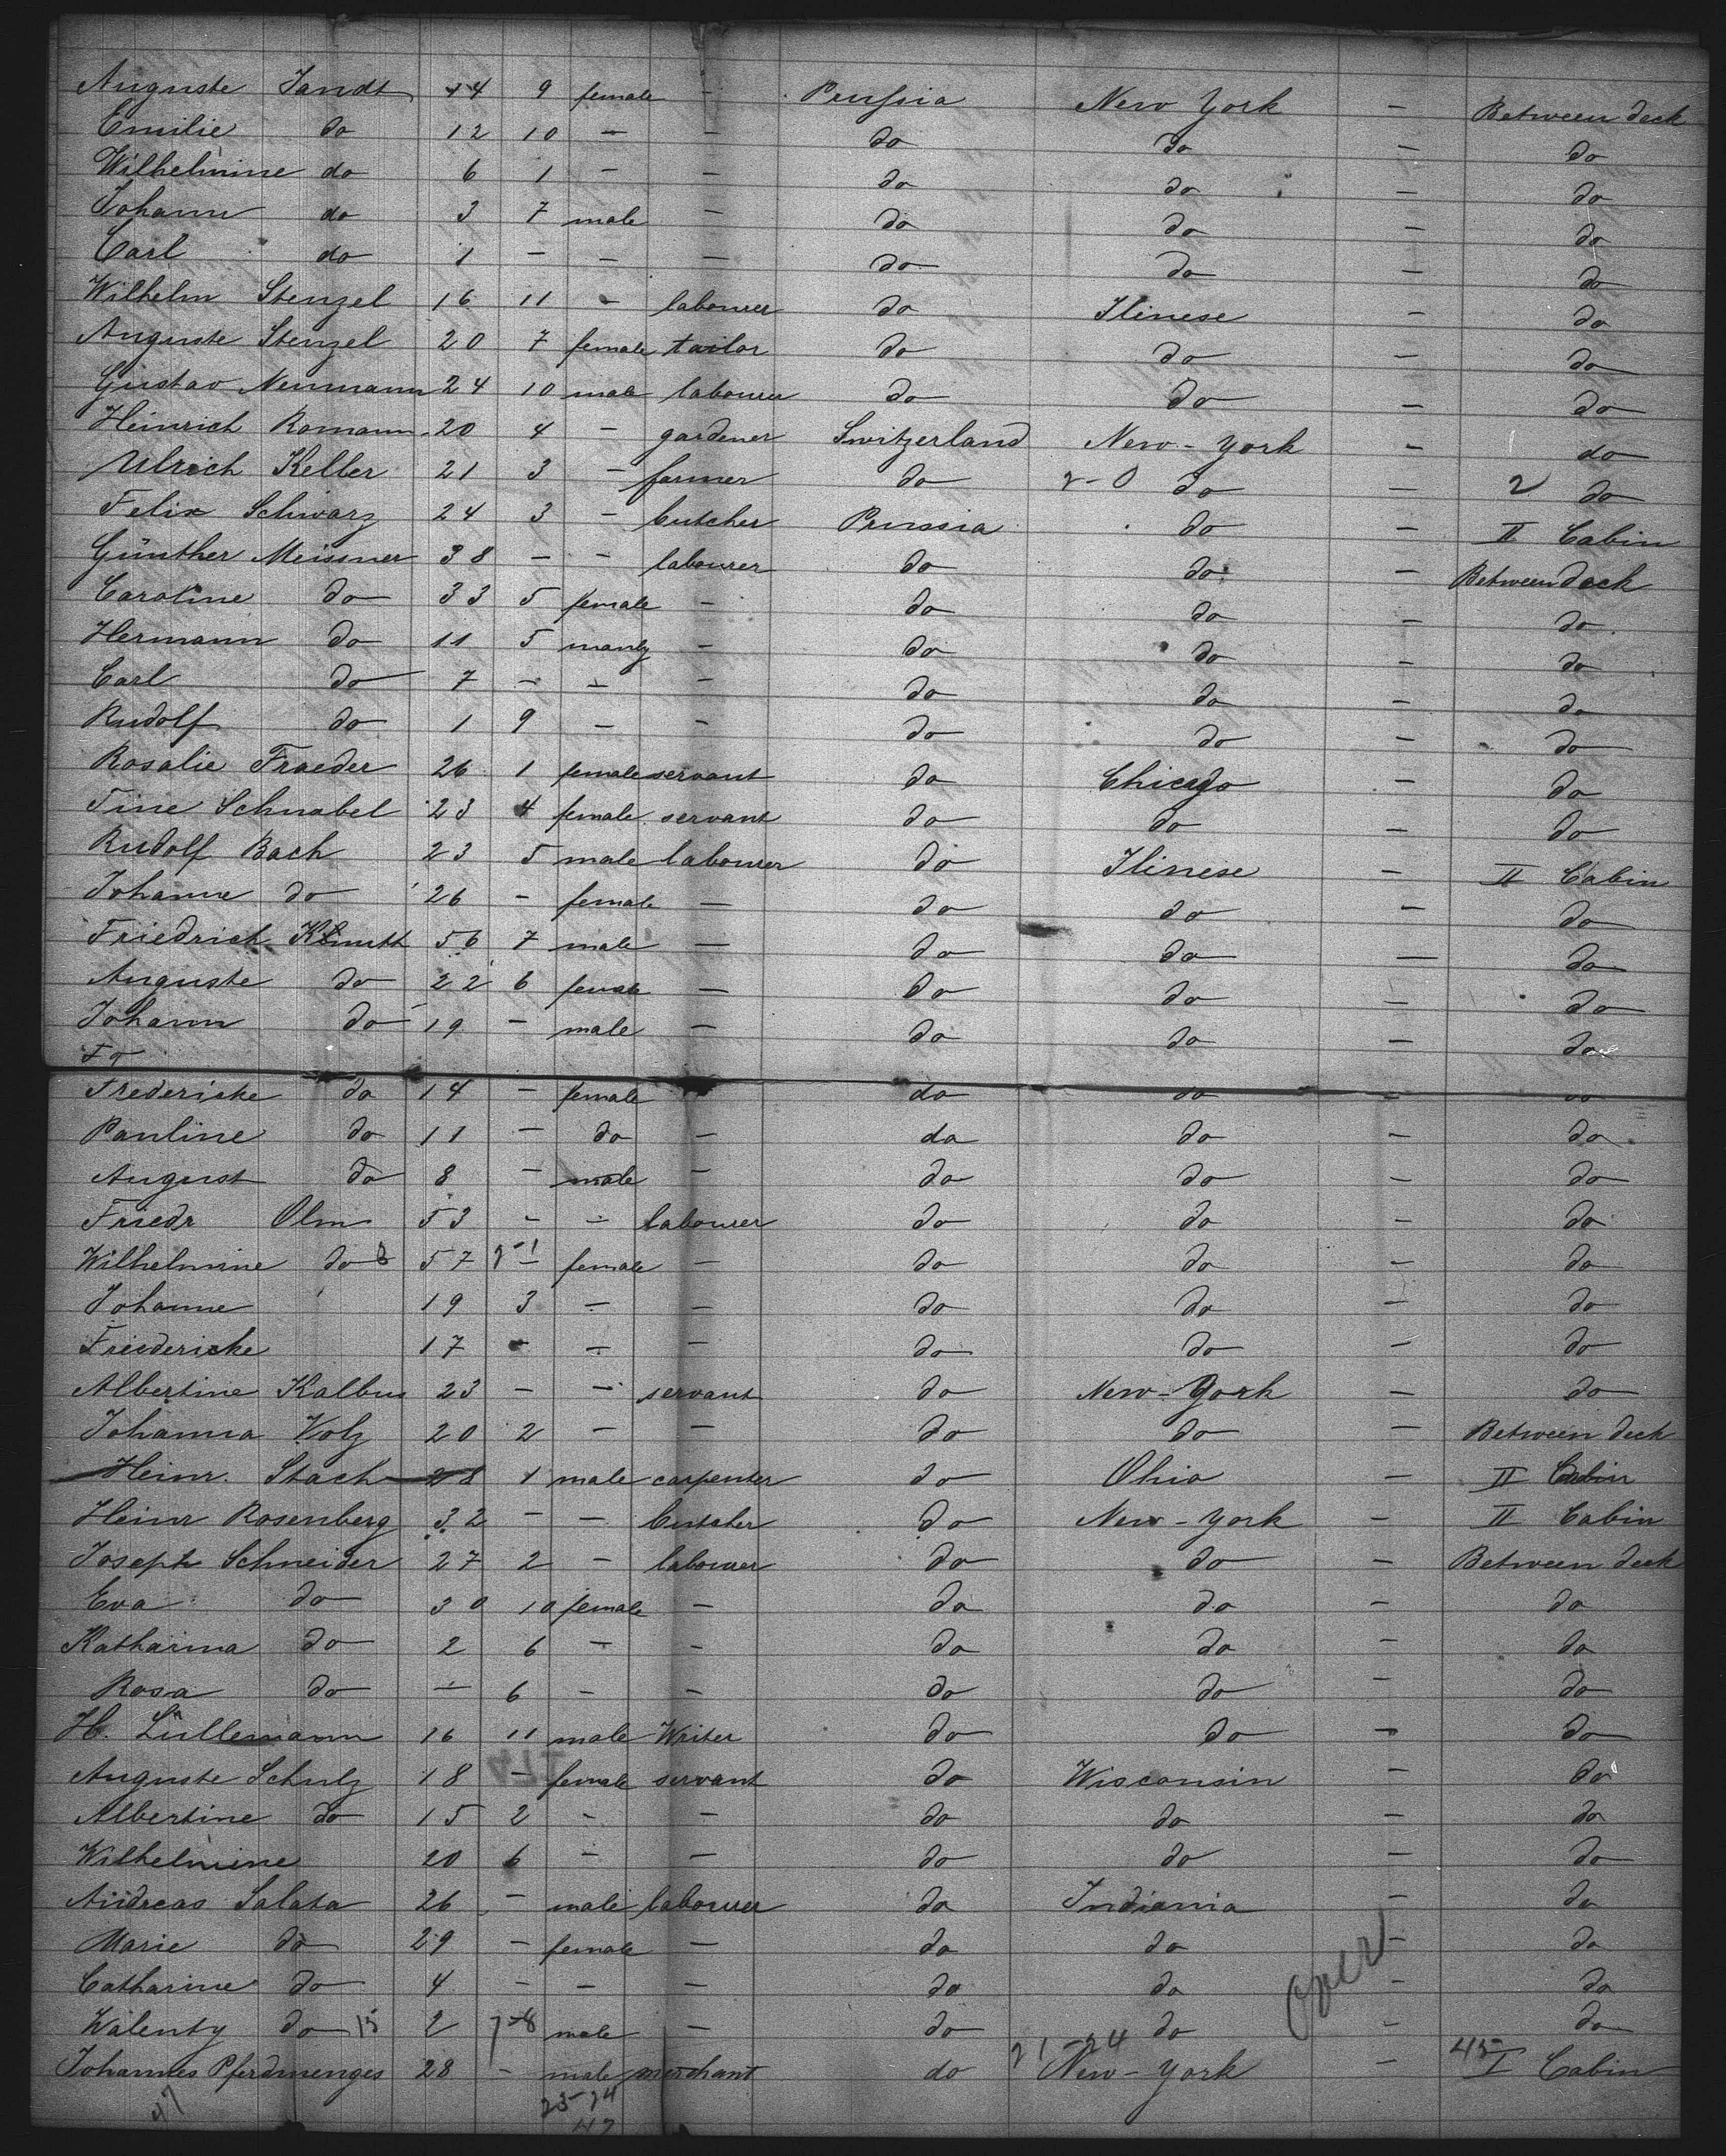 Auguste Jandt 14 9 female - Prussia New York - Between deck
Emilie do 12 10 - - do do - do
Wilhelmine do 6 1 - - do do - do
Johann do 3 7 male - do do - do
Carl do 1 - - - do do - do
Wilhelm Stenzel 16 11 - labourer do Ilinese - do
Auguste Stenzel 20 7 female tailor do do - do
Gustav Neumann 24 10 male labourer do do - do
Heinrich Romann 20 4 - gardener Switzerland New-York - do
Ulrich Keller 21 3 - farmer do 2-0 do - 2 do
Felix Schwarz 24 3 - butcher Prussia do - II Cabin
Günther Meissner 38 - - labourer do do - Between deck
Caroline do 33 5 female - do do - do
Hermann do 11 5 manly - do do - do
Carl do 7 - - - do do - do
Rudolf do 1 9 - - do do - do
Rosalie Fraeder 26 1 female servant do Chicago - do
Tine Schnabel 23 4 female servant do do - do
Rudolf Bach 23 5 male labourer do Ilinese - II Cabin
Johanne do 26 - female - do do - do
Friedrich Knuth 56 7 male - do do - do
Auguste do 22 6 female - do do - do
Johann do 19 - male - do do - do
Fredericke do 14 - female do do - do
Pauline do 11 - do - do do - do
August do 8 - male - do do - do
Friedr Olm 53 - - labourer do do - do
Wilhelmine do 57 - female - do do - do
Johanne 19 3 - - do do - do
Friedericke 17 - - - do do - do
Albertine Kalbus 23 - - servant do New-York - do
Johanna Volz 20 2 - - do do - Between deck
Heinr. Stach 28 1 male carpenter do Ohio - II Cabin
Heinr Rosenberg 32 - - butcher do New-York - II Cabin
Joseph Schneider 27 2 - labourer do do - Between deck
Eva do 30 10 female - do do - do
Katharina do 2 6 - - do do - do
Rosa do - 6 - - do do - do
H. Lüllemann 16 11 male Writer do do - do
Auguste Schulz 18 - female servant do Wisconsin - do
Albertine do 15 2 - - do do - do
Wilhelmine 20 6 - - do do - do
Andreas Salata 26 - male labourer do Indiania - do
Marie do 29 - female - do do - do
Catharine do 4 - - - do do - do
Walenty do 15 2 7-8 male - do do - do
Over
Johannes Pferdmenges 28 - male merchant do 21-24 New-York - 45 I Cabin
47 23-24
47